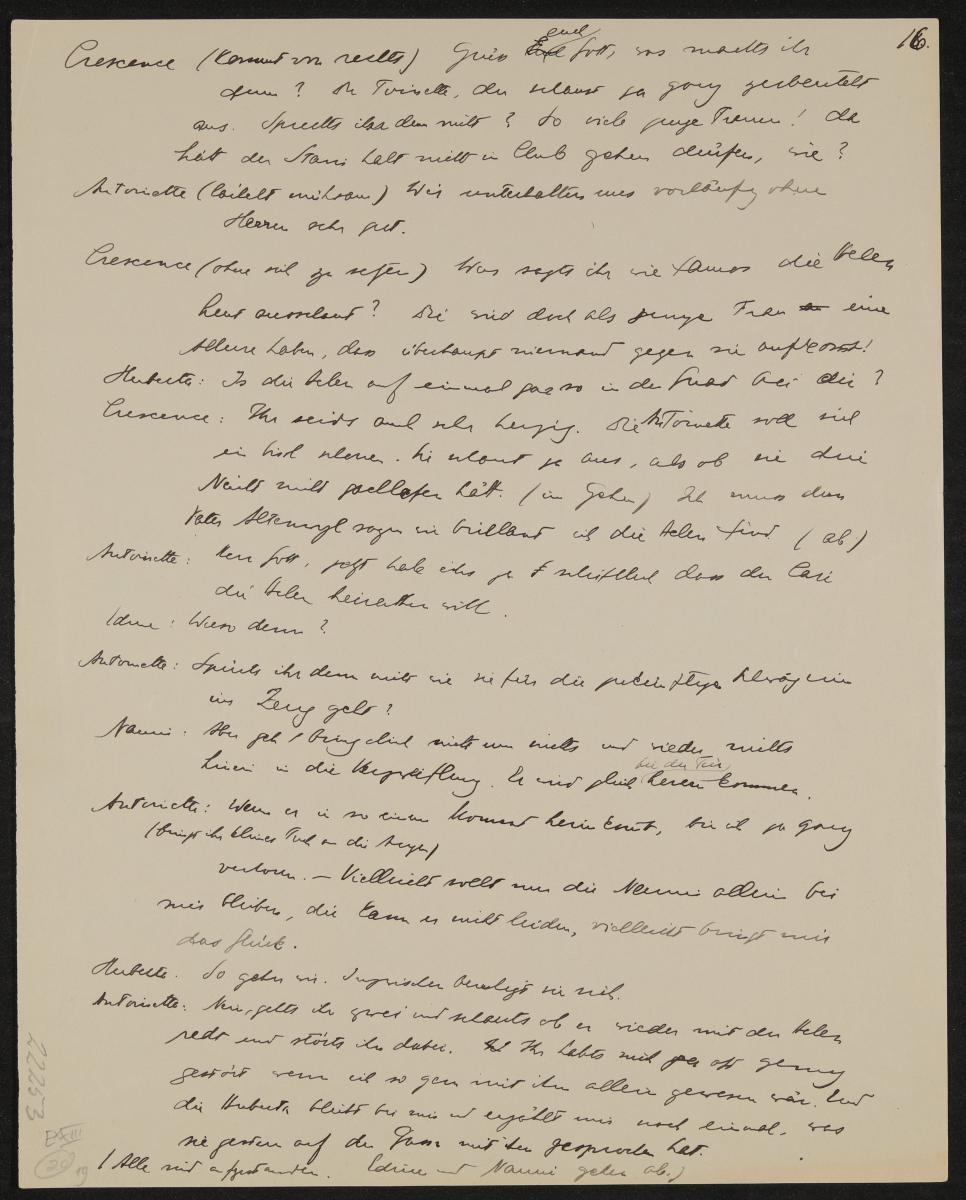 16.
Crescence (kommt von rechts) Grüss Euch Gott, was machts ihr
denn? Die Toinette, die schaut ja ganz zerbeutelt
aus. Sprechts ihr denn nicht? So viele junge Frauen! Da
hätt der Stani halt nicht in Club gehen dürfen, wie?
Antoinette (lächelt mühsam) Wir unterhalten uns vorläufig ohne
Herren sehr gut.
Crescence (ohne sich zu setzen) Was sagts ihr wie famos die Helen
heut ausschaut? Die wird doch als junge Frau eine
Allure haben, dass überhaupt niemand gegen sie aufkommt!
Huberta: Is die Helen auf einmal gar so in der Gnad bei dir?
Crescence: Ihr seids auch sehr herzig. Die Antoinette soll sich
ein bissl schonen. Sie schaut ja aus, als ob sie drei
Nächt nicht geschlafen hätt. (im Gehen) Ich muss dem
Vater Altenwyl sagen wie brillant ich die Helen find (ab)
Antoinette: Herr Gott, jetzt hab ichs ja schriftlich dass der Cari
die Helen heirathen will.
Edine: Wieso denn?
Antoinette: Spürts ihr denn nicht wie sie für die zukünftige Schwägerin
ins Zeug geht?
Nanni: Aber geh, bring dich nicht um nichts und wieder nichts
hinein in die Verzweiflung. Er wird gleich herein kommen.
bei der Tür
Antoinette: Wenn er in so einem Moment hereinkommt, bin ich ja ganz
(bringt ihr kleines Tuch an die Augen)
verloren. — Vielleicht sollt nur die Nanni allein bei
mir bleiben, die kann er nicht leiden, vielleicht bringt mir
das Glück.
Huberta. So gehen wir. Inzwischen beruhigt sie sich.
Antoinette: Nein, gehts ihr zwei und schauts ob er wieder mit der Helen
redt und störts ihn dabei. Ihr habts mich ja oft genug
gestört wenn ich so gern mit ihm allein gewesen wär. Und
die Huberta bleibt bei mir und erzählt mir noch einmal, was
sie gestern auf der Gasse mit ihm gesprochen hat.
(Alle sind aufgestanden. Edine und Nanni gehen ab.)
22253
E XIII
20
19